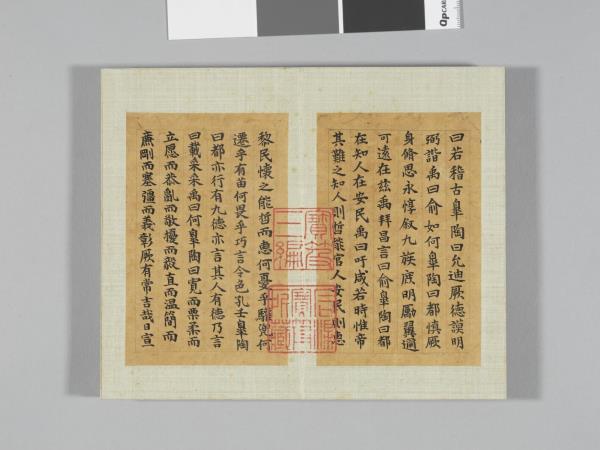 QPCARD
曰若稽古臯陶曰允迪厥德謨明
弼諧禹曰俞如何臯陶曰都慎厥
身脩思永惇叙九族庶明勵翼邇
可遠在兹禹拜昌言曰俞臯陶曰都
在知人在安民禹曰吁咸若時惟帝
其難之知人則哲能官人安民則惠
黎民懷之能哲而惠何憂乎驩兜何
遷乎有苗何畏乎巧言令色孔壬臯陶
曰都亦行有九德亦言其人有德乃言
曰載采采禹曰何臯陶曰寬而栗柔而
立愿而恭亂而敬擾而毅直而溫簡而
廉剛而塞彊而義彰厥有常吉哉日宣
寶笈
三編